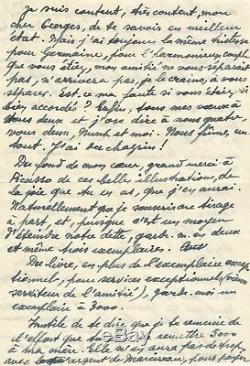 Je suis content, très content, mon
cher Georges, de te savoir en meilleur
état. Mais j'ai toujours la même tristesse
pour Germaine, pour l'harmonieux couple
que vous étiez, mon amitié ne vous séparait
pas, n'arrivera pas, je le crains, à vous
séparer. Est-ce ma faute si vous étiez si
bien accordés ? Enfin, tous mes vœux à
vous deux et j'ose dire à nous quatre,
vous deux, Nush et moi. Nous fûmes un
tout. J'ai des chagrins !
Du fond de mon cœur, grand merci à
Picasso de ces belles illustrations, de
la joie que tu en as, que j'en aurai.
Naturellement que je souscris au tirage
à part, et, puisque c'est un moyen
d'éteindre notre dette, garde-m'en deux
et même trois exemplaires.
Du livre, en plus de l'exemplaire excep-
tionnel, pour services exceptionnels (
serviteur de l'amitié), garde-moi un
exemplaire à 3000
Inutile de te dire que je te remercie de
l'effort que tu remettre 3000
à ma mère. Elle n'en aura pas de trop
avec argent de Marcenac, pour payer